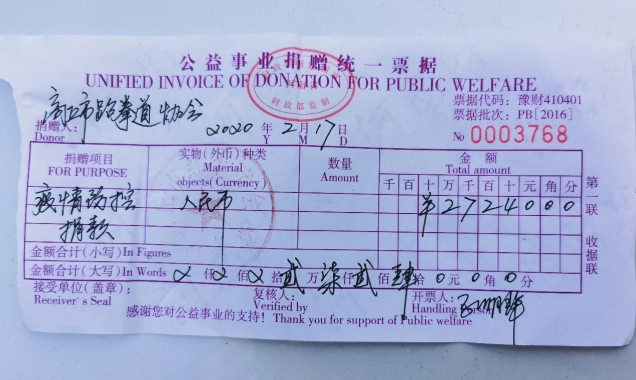 公益事业捐赠统一票据
UNIFIED INVOICE OF DONATION FOR PUBLIC WELFARE
财政部监制
票据代码：豫财410401
票据批次：PB[2016]
市跆拳道协会
捐赠人：
Donor
2020 年 2 月 17 日
Y M D
No 0003768
捐赠项目
FOR PURPOSE
实物(外币)种类
Material
objects(Currency)
数量
Amount
金额
Total amount
千 百 十 万 千 百 十 元 角 分
疫情防控 人民币 ¥ 2 7 2 4 0 0 0
捐款
金额合计(小写)In Figures
金额合计(大写)In Words 仟 佰 贰 万 柒 仟 贰 佰 肆 拾 0 元 0 角 0 分
第一联
收据联
接受单位(盖章)：
Receiver's Seal
复核人：
Verified by
开票人：
Handling Person
感谢您对公益事业的支持！Thank you for support of Public welfare